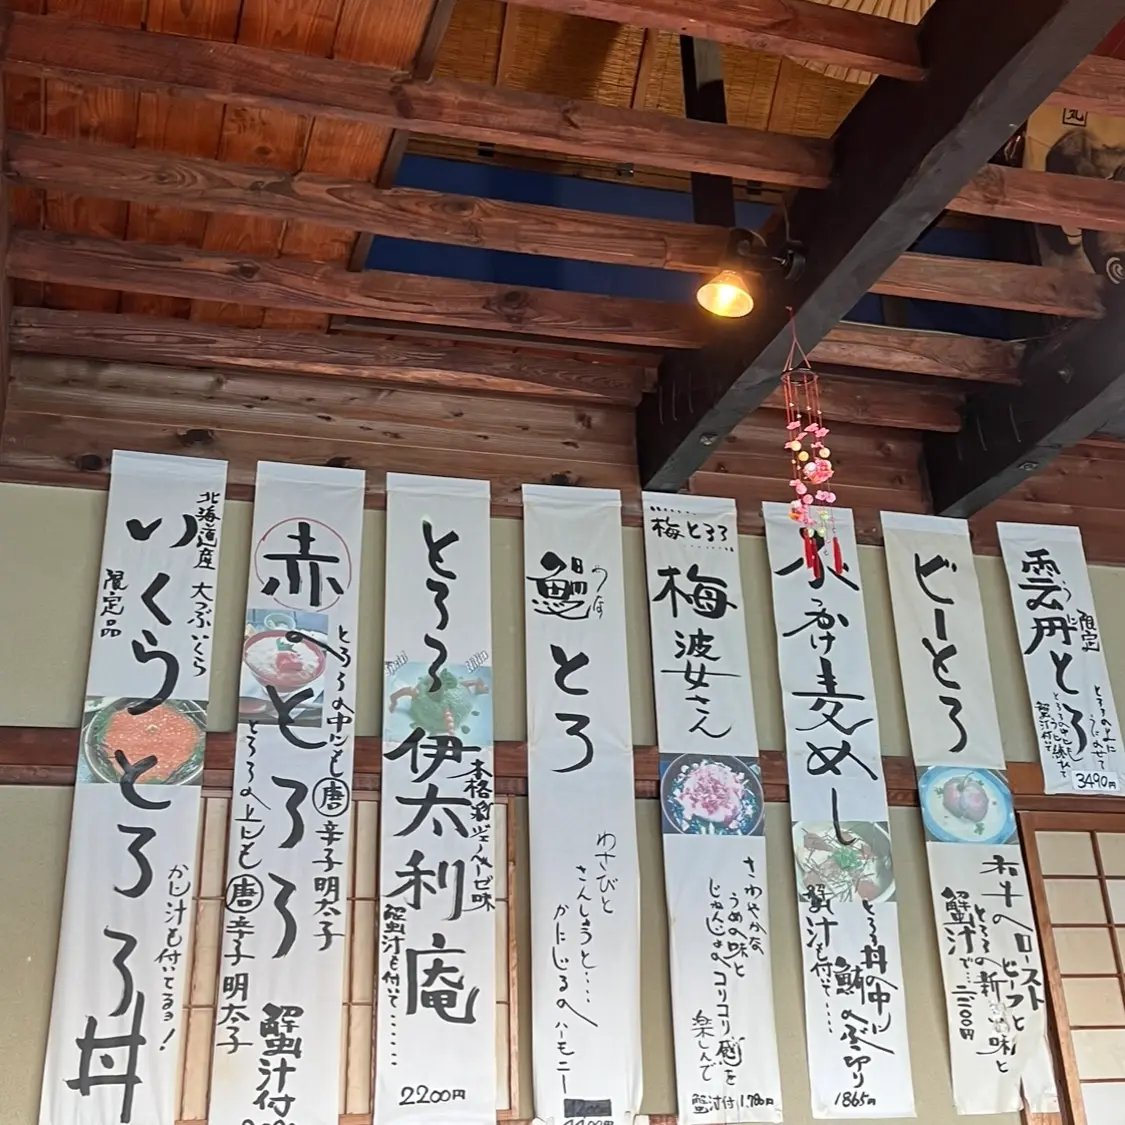 雲丹とろ
うに
限定
とろろの上に
うにのせて
とろろの中にも練れて
蟹汁付いて
3490円
ビーとろ
和牛のローストビーフと
とろろの新
味と
蟹汁で…
かけ麦めし
とろろ丼の中に
鮪のぶつ切り
蟹汁も付いて……
1865円
梅とろろ
梅波女さん
さわやかな
うめの味と
じゅんじゅのコリコリ感を
楽しんで
蟹汁付1,780円
とろ
わさびと
さんしょうと…
かにじるのハーモニー
とろろ伊太利庵
蟹汁も付いて……
2200円
赤のとろろ
とろろの中にも唐辛子明太子
とろろの上にも唐辛子明太子
蟹汁付
北海道産 大つぶいくら
いくらとろろ丼
限定品
かに汁も付いてるヨ!